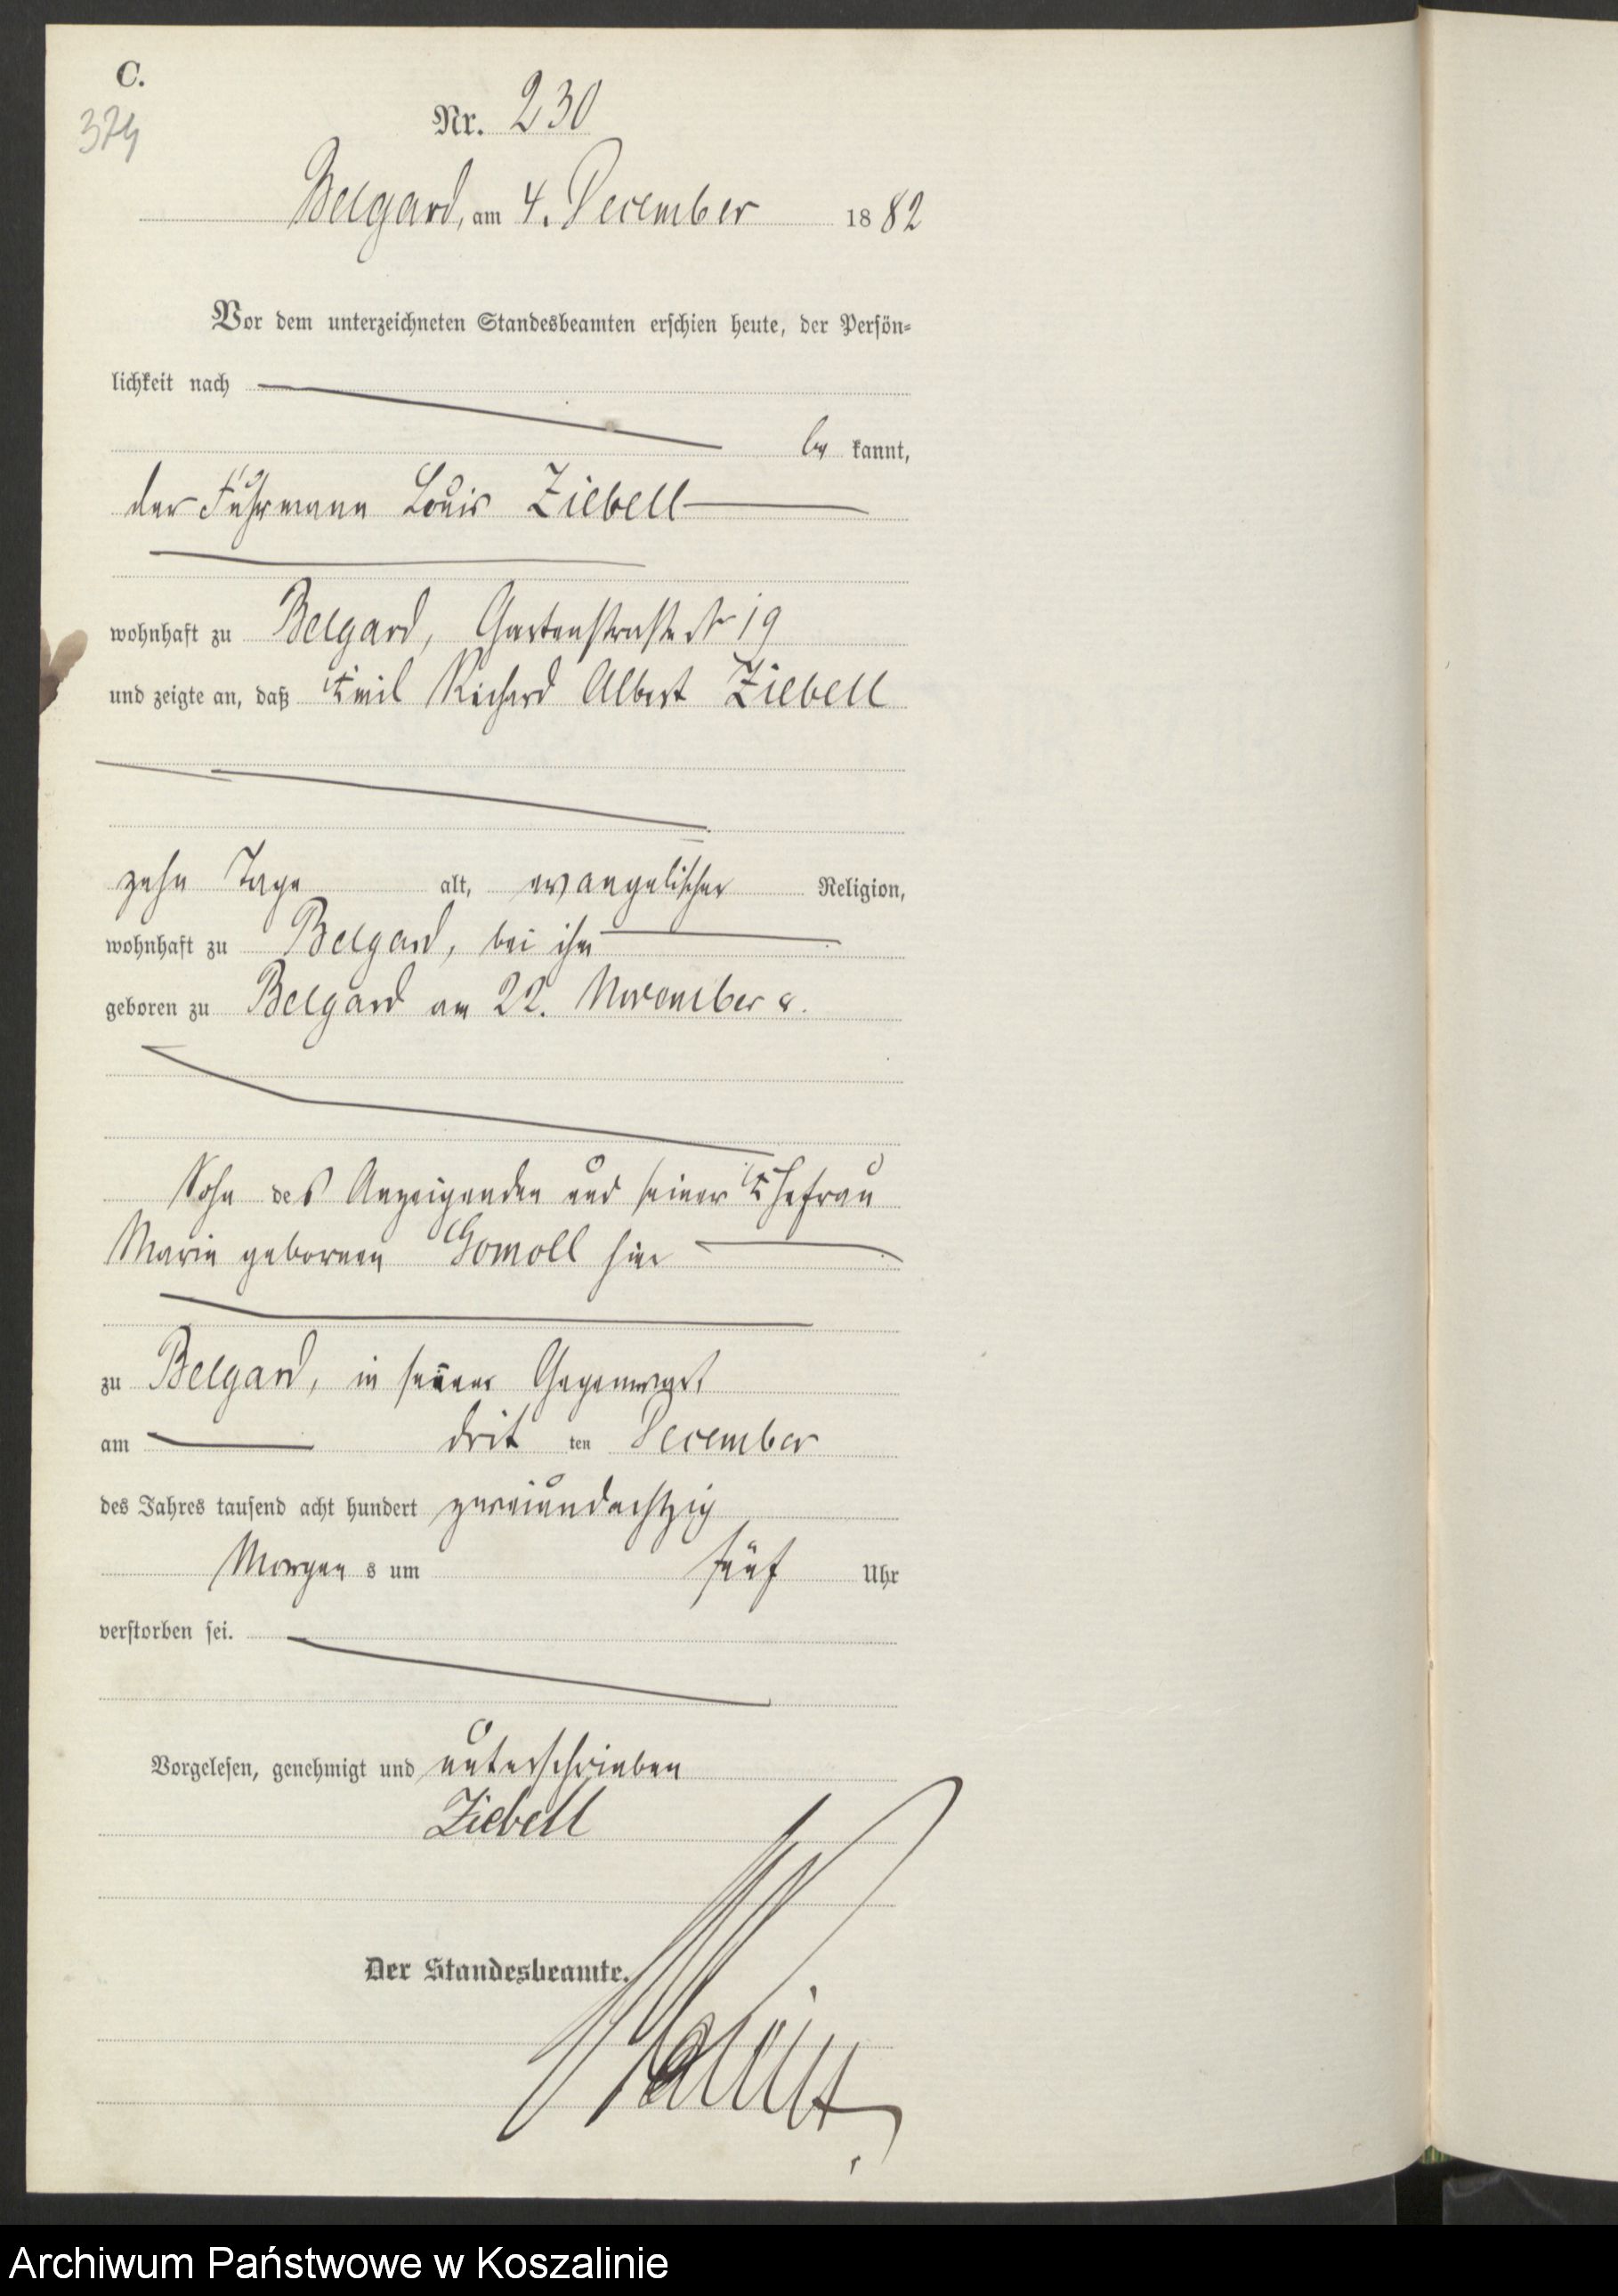 C.
374
Nr. 230
Belgard, am 4. December 1882
Vor dem unterzeichneten Standesbeamten erschien heute, der Persön-
lichkeit nach
be kannt,
der Fuhrmann Louis Ziebell
wohnhaft zu Belgard, Gartenstraße № 19
und zeigte an, daß Emil Richard Albert Ziebell
zehn Tage alt, evangelischer Religion,
wohnhaft zu Belgard, bei ihm
geboren zu Belgard am 22. November c.
Sohn des Anzeigenden und seiner Ehefrau
Marie geborenen Gomoll hier
zu Belgard, in seiner Gegenwart
am drit ten December
des Jahres tausend acht hundert zweiundachtzig
Morgen s um fünf Uhr
verstorben sei.
Vorgelesen, genehmigt und unterschrieben
Ziebell
Der Standesbeamte.
Archiwum Państwowe w Koszalinie